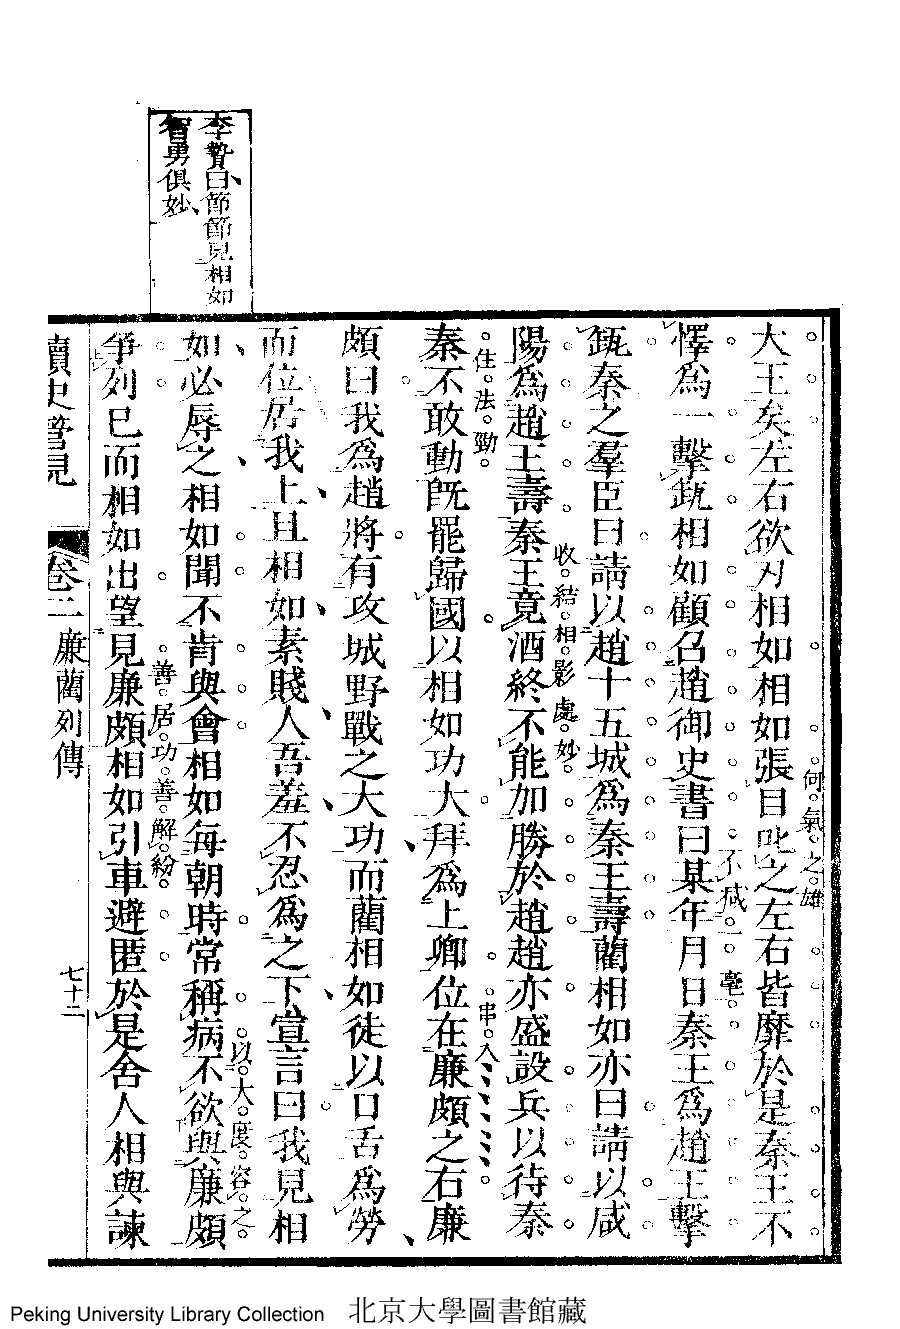 李贄曰節節見相如
智勇俱妙
大王矣左右欲刃相如相如張目叱之左右皆靡於是秦王不
何氣之雄
懌爲一擊缻相如顧召趙御史書曰某年月日秦王爲趙王擊
不減一毫
缻秦之羣臣曰請以趙十五城爲秦王壽藺相如亦曰請以咸
陽爲趙王壽秦王竟酒終不能加勝於趙趙亦盛設兵以待秦
收結相影處妙
秦不敢動旣罷歸國以相如功大拜爲上卿位在廉頗之右廉
住法勁
串入
頗曰我爲趙將有攻城野戰之大功而藺相如徒以口舌爲勞
而位居我上且相如素賤人吾羞不忍爲之下宣言曰我見相
如必辱之相如聞不肯與會相如每朝時常稱病不欲與廉頗
以大度容之
爭列已而相如出望見廉頗相如引車避匿於是舍人相與諫
善居功善解紛
讀史管見
卷二
廉藺列傳
七十二
Peking University Library Collection 北京大學圖書館藏